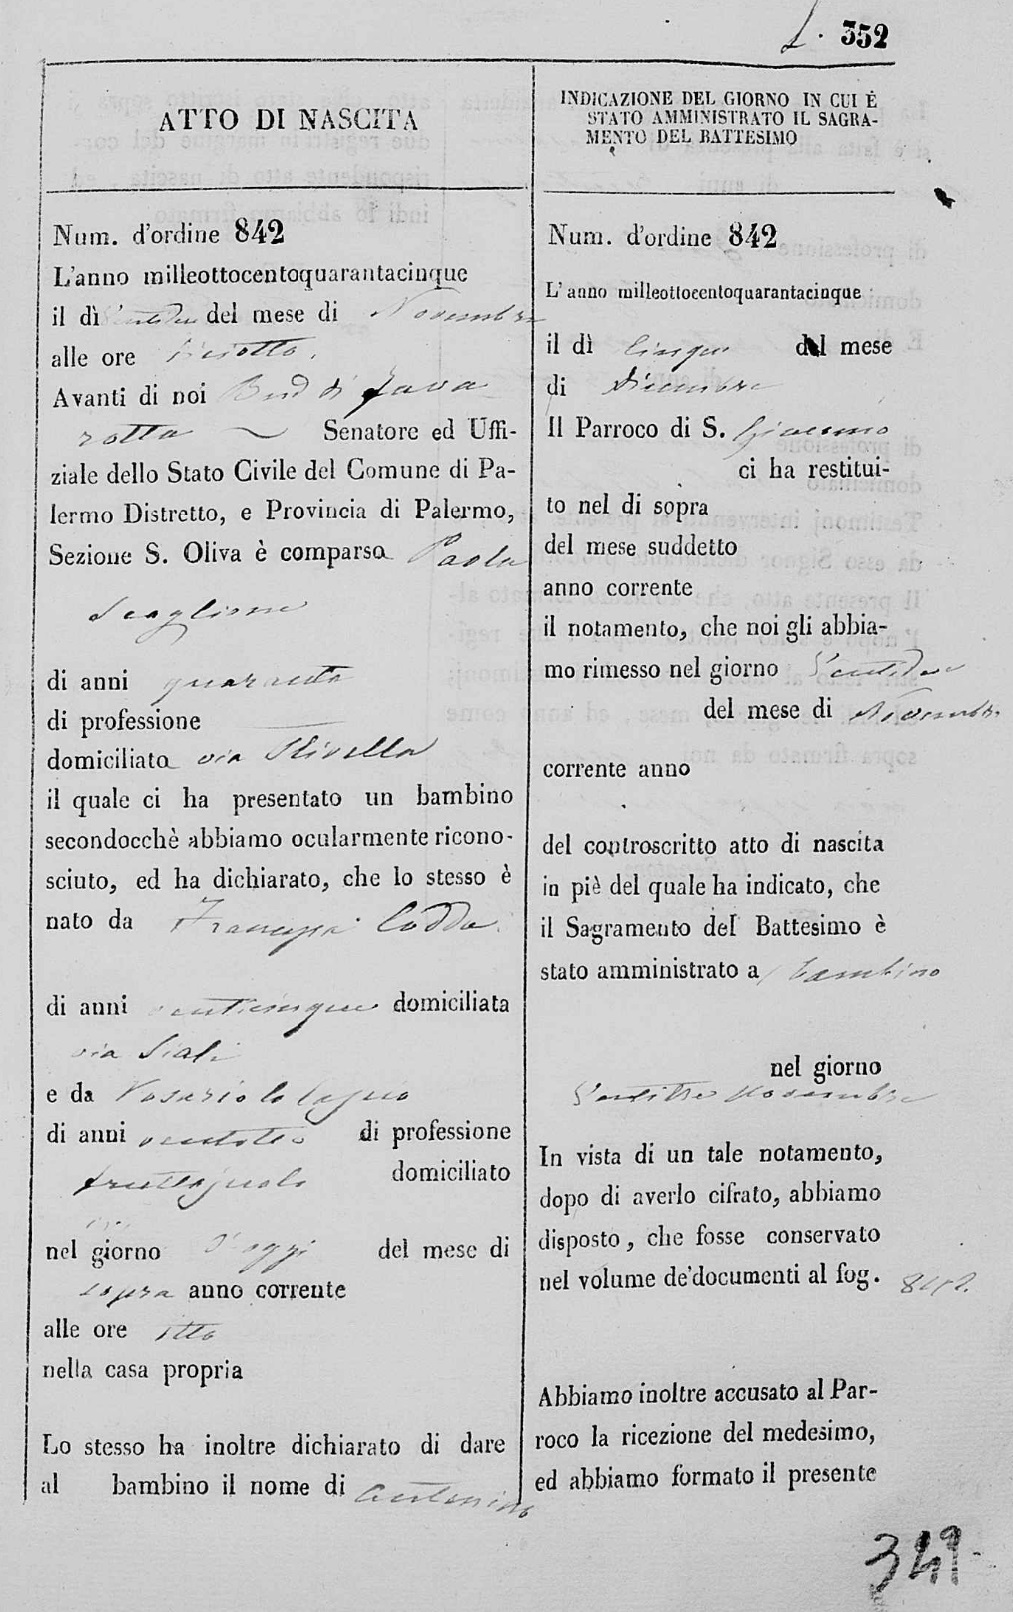 352
ATTO DI NASCITA
Num. d'ordine 842
L'anno milleottocentoquarantacinque
il dì Ventidue del mese di Novembre
alle ore dieciotto.
Avanti di noi
rotta Senatore ed Uffi-
ziale dello Stato Civile del Comune di Pa-
lermo Distretto, e Provincia di Palermo,
Sezione S. Oliva è comparsa Paola
Scaglione
di anni quaranta
di professione
domiciliata via
il quale ci ha presentato un bambino
secondocchè abbiamo ocularmente ricono-
sciuto, ed ha dichiarato, che lo stesso è
nato da Francesca
di anni venticinque domiciliata
via
e da Rosario lo
di anni ventotto di professione
fruttajuolo domiciliato
ivi
nel giorno d'oggi del mese di
sopra anno corrente
alle ore otto
nella casa propria
Lo stesso ha inoltre dichiarato di dare
al bambino il nome di Antonino
INDICAZIONE DEL GIORNO IN CUI È
STATO AMMINISTRATO IL SAGRA-
MENTO DEL BATTESIMO
Num. d'ordine 842
L'anno milleottocentoquarantacinque
il dì Cinque del mese
di Dicembre
Il Parroco di S. Giacomo
ci ha restitui-
to nel di sopra
del mese suddetto
anno corrente
il notamento, che noi gli abbia-
mo rimesso nel giorno Ventidue
del mese di Novembre
corrente anno
del controscritto atto di nascita
in piè del quale ha indicato, che
il Sagramento del Battesimo è
stato amministrato a bambino
nel giorno
Ventitre Novembre
In vista di un tale notamento,
dopo di averlo cifrato, abbiamo
disposto, che fosse conservato
nel volume de'documenti al fog. 842.
Abbiamo inoltre accusato al Par-
roco la ricezione del medesimo,
ed abbiamo formato il presente
349